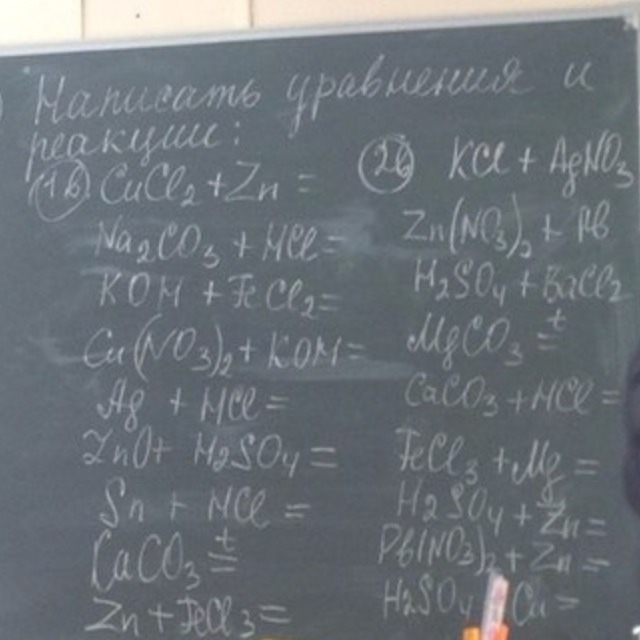 Написать уравнения и
реакции:
1в) CuCl2 + Zn =
Na2CO3 + HCl =
KOH + FeCl2 =
Cu(NO3)2 + KOH =
Ag + HCl =
ZnO + H2SO4 =
Sn + HCl =
CaCO3 t=
Zn + FeCl3 =
2в) KCl + AgNO3
Zn(NO3)2 + Pb
H2SO4 + BaCl2
MgCO3 t=
CaCO3 + HCl =
FeCl3 + Mg =
H2SO4 + Zn =
Pb(NO3)2 + Zn =
H2SO4 Cu =